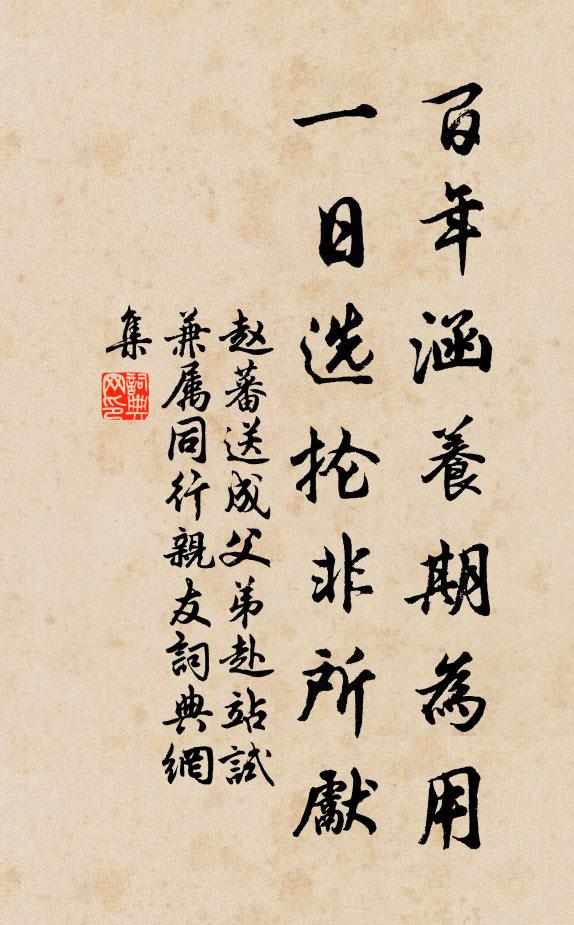 百年涵養期為用
一日选抡非所獻
赵蕃送成父弟赴站試
兼属同行親友詞典網
集
詞典网印